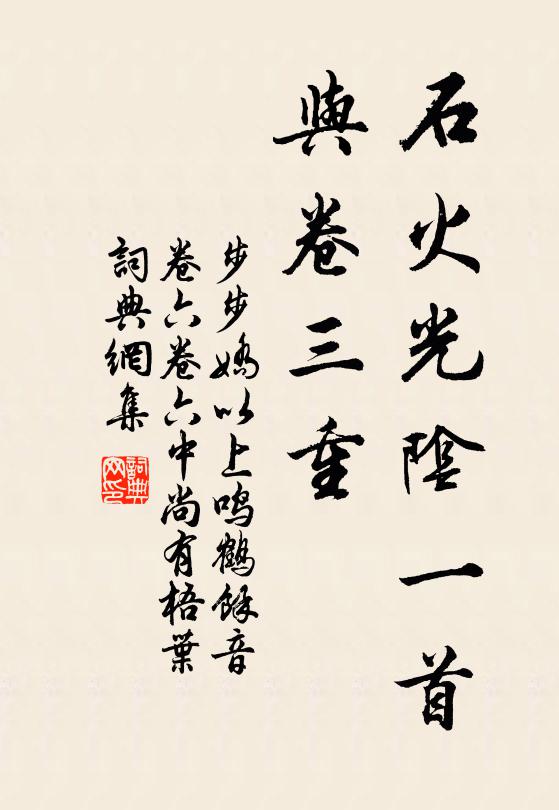 石火光陰一首
與卷三重
步步嬌以上鳴鶴餘音
卷六卷六中尚有梧葉
詞典網集
詞典網印